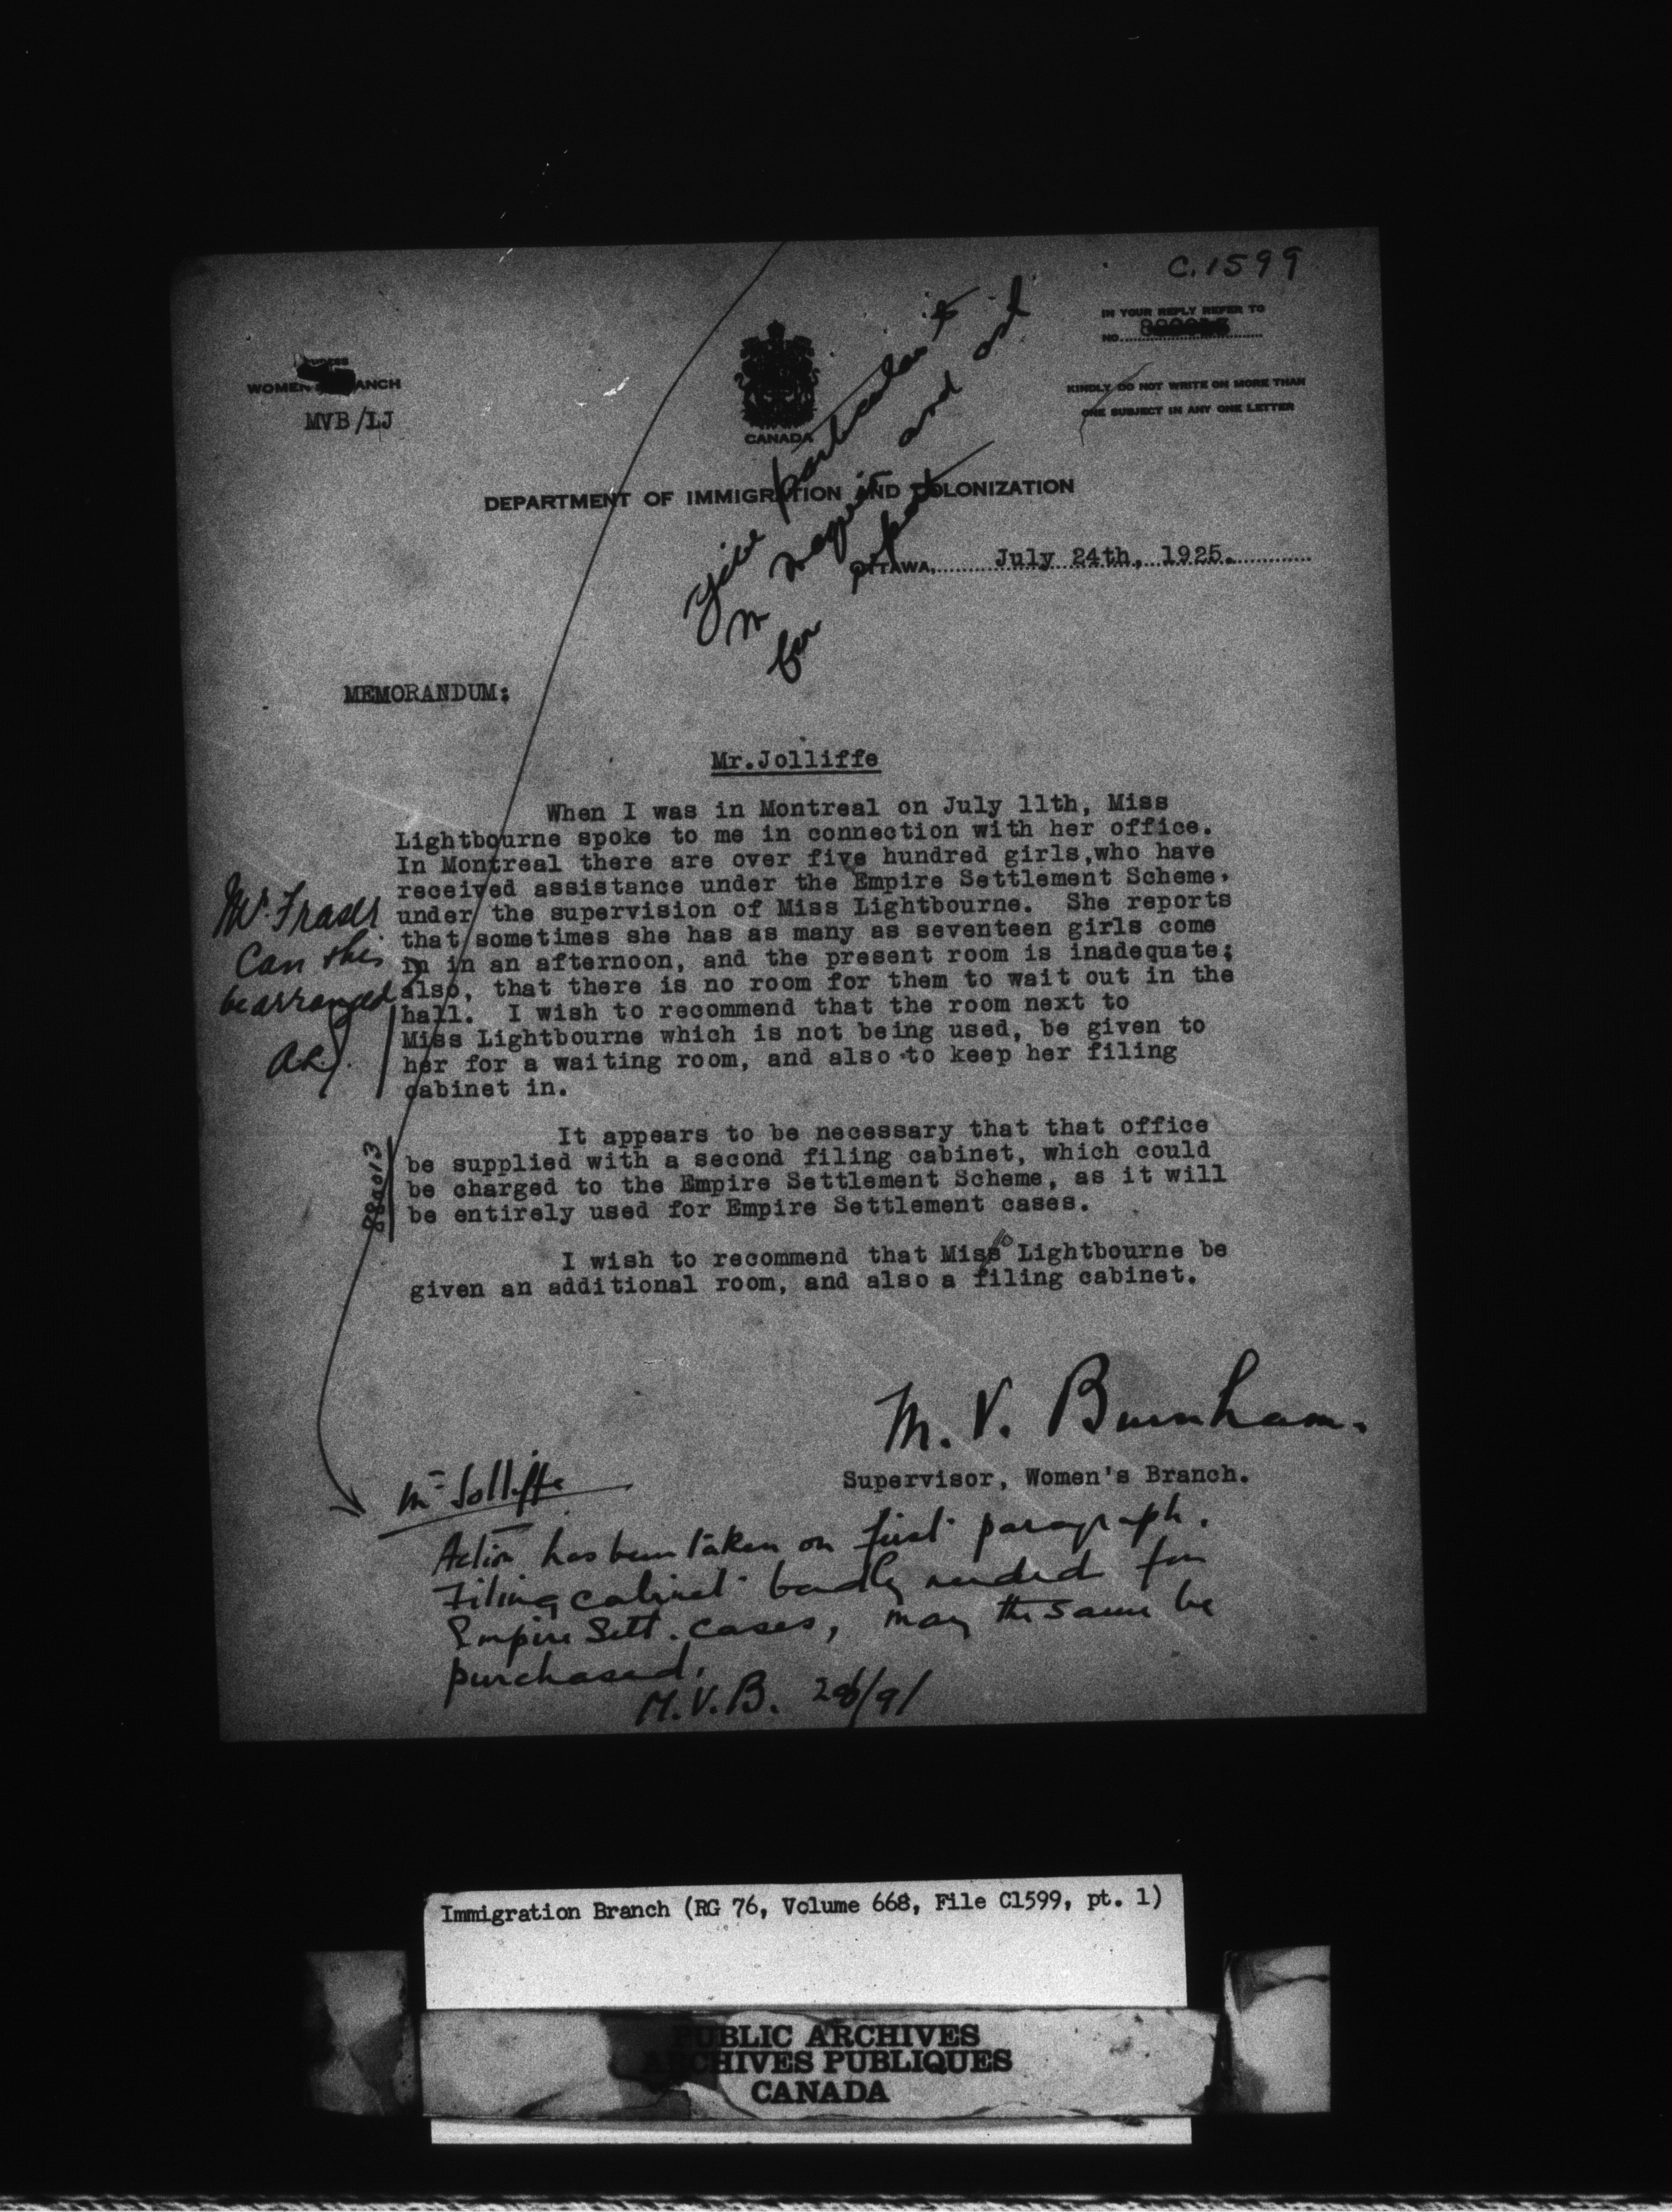 C.1599
IN YOUR REPLY REFER TO
NO.
WOMEN ANCH
MVB/LJ
KINDLY DO NOT WRITE ON MORE THAN
ONE SUBJECT IN ANY ONE LETTER
CANADA
DEPARTMENT OF IMMIGRATION AND COLONIZATION
Give particulars to
Mr Maguire and ask
for report
OTTAWA, July 24th, 1925.
MEMORANDUM:
Mr.Jolliffe
When I was in Montreal on July 11th, Miss
Lightbourne spoke to me in connection with her office.
In Montreal there are over five hundred girls,who have
received assistance under the Empire Settlement Scheme,
under the supervision of Miss Lightbourne. She reports
that sometimes she has as many as seventeen girls come
in in an afternoon, and the present room is inadequate;
also, that there is no room for them to wait out in the
hall. I wish to recommend that the room next to
Miss Lightbourne which is not being used, be given to
her for a waiting room, and also to keep her filing
cabinet in.
Mr. Fraser
Can this
be arranged
ALJ.
It appears to be necessary that that office
be supplied with a second filing cabinet, which could
be charged to the Empire Settlement Scheme, as it will
be entirely used for Empire Settlement cases.
880013
I wish to recommend that Miss Lightbourne be
given an additional room, and also a filing cabinet.
M. V. Burnham.
Supervisor, Women's Branch.
Mr Jolliffe
Action has been taken on first paragraph.
Filing cabinet badly needed for
Empire Sett. cases, may the same be
purchased.
M.V.B. 28/9/
Immigration Branch (RG 76, Volume 668, File C1599, pt. 1)
PUBLIC ARCHIVES
ARCHIVES PUBLIQUES
CANADA